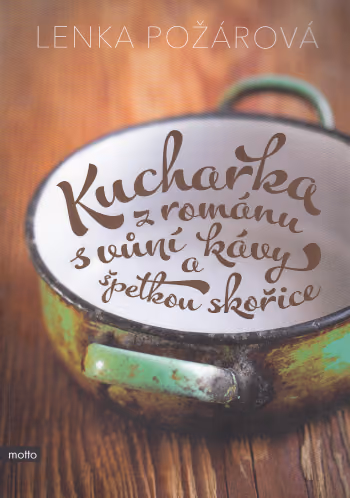 LENKA POŽÁROVÁ
Kuchařka
z románu
s vůní kávy
a
špetkou skořice
motto